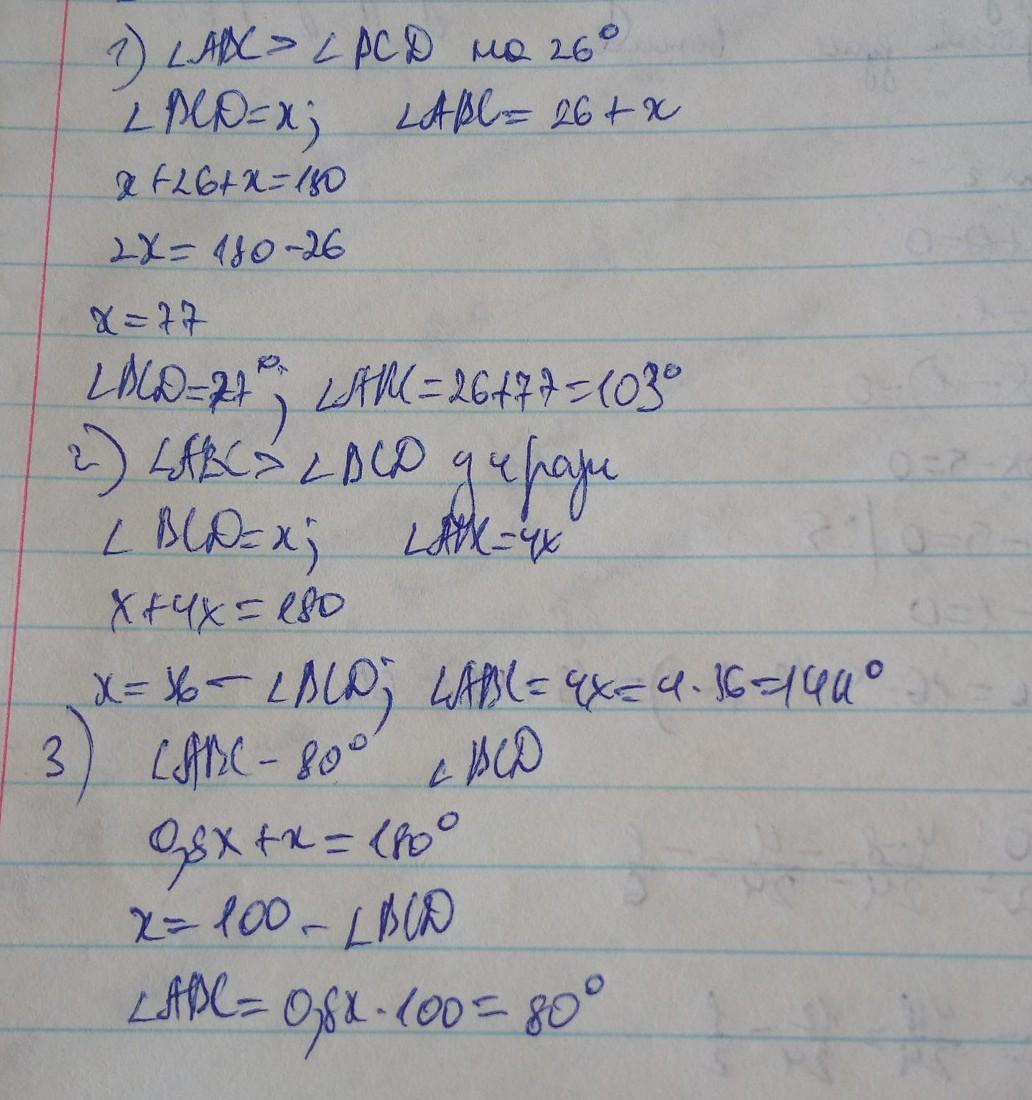 1) ∠ABC > ∠BCD на 26°
∠BCD = x; ∠ABC = 26 + x
x + 26 + x = 180
2x = 180 - 26
x = 77
∠BCD = 77°; ∠ABC = 26 + 77 = 103°
2) ∠ABC > ∠BCD у 4 рази
∠BCD = x; ∠ABC = 4x
x + 4x = 180
x = 36 - ∠BCD; ∠ABC = 4x = 4 · 36 = 144°
3) ∠ABC - 80° ∠BCD
0,8x + x = 180°
x = 100 - ∠BCD
∠ABC = 0,8x · 100 = 80°